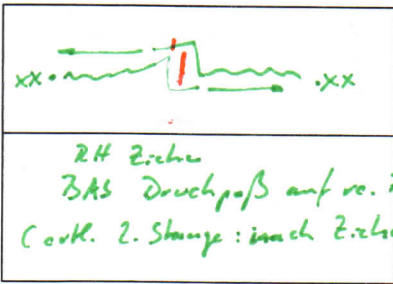 xx xx
RH Ziehen
BAS Druckpaß auf re.
(evtl. 2. Stange: nach Ziehe